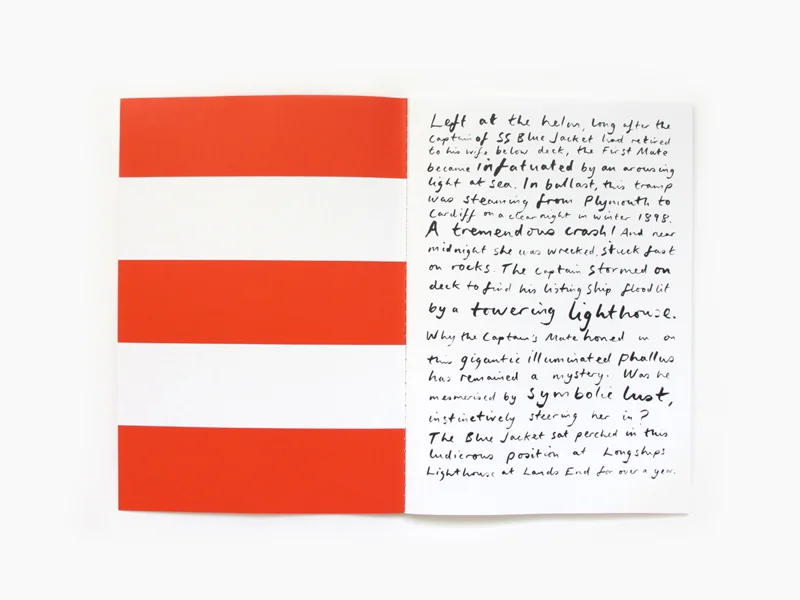 Left at the helm, long after the
Captain of SS Blue Jacket had retired
to his wife below deck, the First Mate
became infatuated by an arousing
light at sea. In ballast, this tramp
was steaming from Plymouth to
Cardiff on a clear night in winter 1898.
A tremendous crash! And near
midnight she was wrecked, stuck fast
on rocks. The Captain stormed on
deck to find his listing ship floodlit
by a towering lighthouse.
Why the Captain's Mate honed in on
this gigantic illuminated phallus
has remained a mystery. Was he
mesmerised by symbolic lust,
instinctively steering her in?
The Blue Jacket sat perched in this
ludicrous position at Longships
Lighthouse at Lands End for over a year.